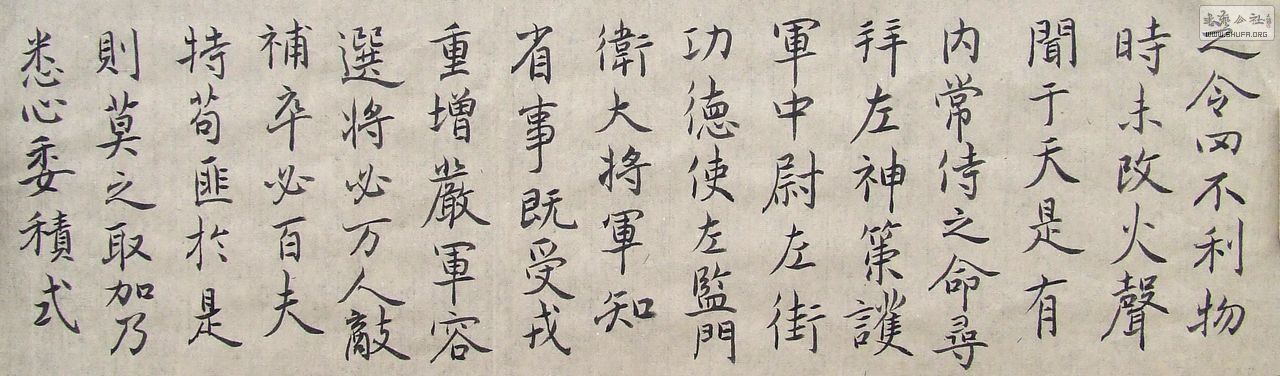 之令罔不利物
時未改火聲
聞于天是有
内常侍之命尋
拜左神策護
軍中尉左街
功德使左監門
衛大將軍知
省事既受戎
重增嚴軍容
選將必万人敵
補卒必百夫
特苟匪於是
則莫之取加乃
悉心委積式
WWW.SHUFA.ORG